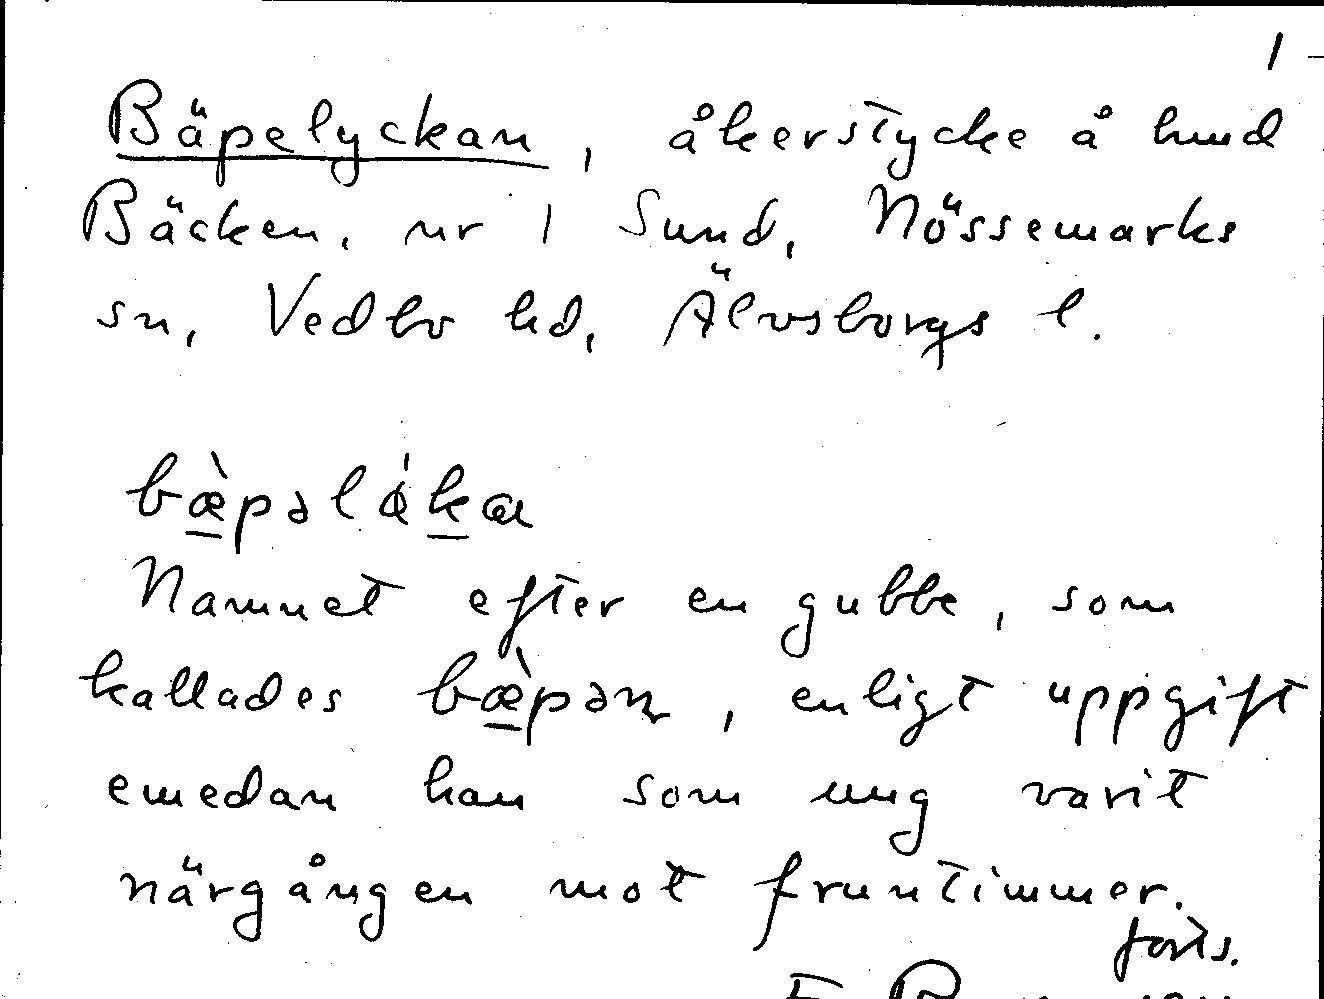 1
Bäpelyckan, åkerstycke å hmd
Bäcken, nr 1 Sund, Nössemarks
sn, Vedbo hd, Älvsborgs l.
Namnet efter en gubbe, som
kallades bæ̀pən, enligt uppgift
emedan han som ung varit
närgången mot fruntimmer.
forts.